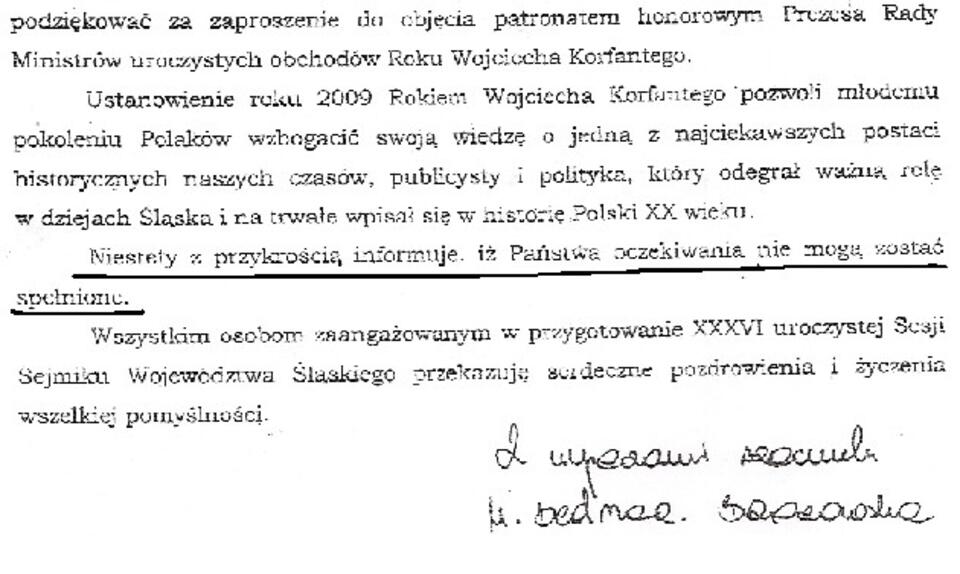 podziękować za zaproszenie do objęcia patronatem honorowym Prezesa Rady
Ministrów uroczystych obchodów Roku Wojciecha Korfantego.
Ustanowienie roku 2009 Rokiem Wojciecha Korfantego pozwoli młodemu
pokoleniu Polaków wzbogacić swoją wiedzę o jedną z najciekawszych postaci
historycznych naszych czasów, publicysty i polityka, który odegrał ważną rolę
w dziejach Śląska i na trwałe wpisał się w historię Polski XX wieku.
Niestety z przykrością informuję, iż Państwa oczekiwania nie mogą zostać
spełnione.
Wszystkim osobom zaangażowanym w przygotowanie XXXVI uroczystej Sesji
Sejmiku Województwa Śląskiego przekazuję serdeczne pozdrowienia i życzenia
wszelkiej pomyślności.
Z wyrazami szacunku